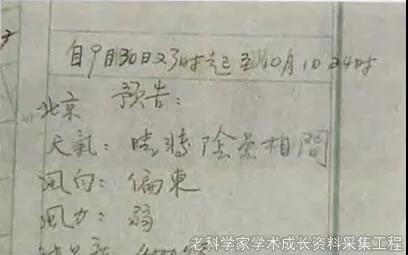 自9月30日23时起至10月1日24时
北京 预告：
天氣：晴轉陰雲相間
風向：偏東
風力：弱
老科学家学术成长资料采集工程